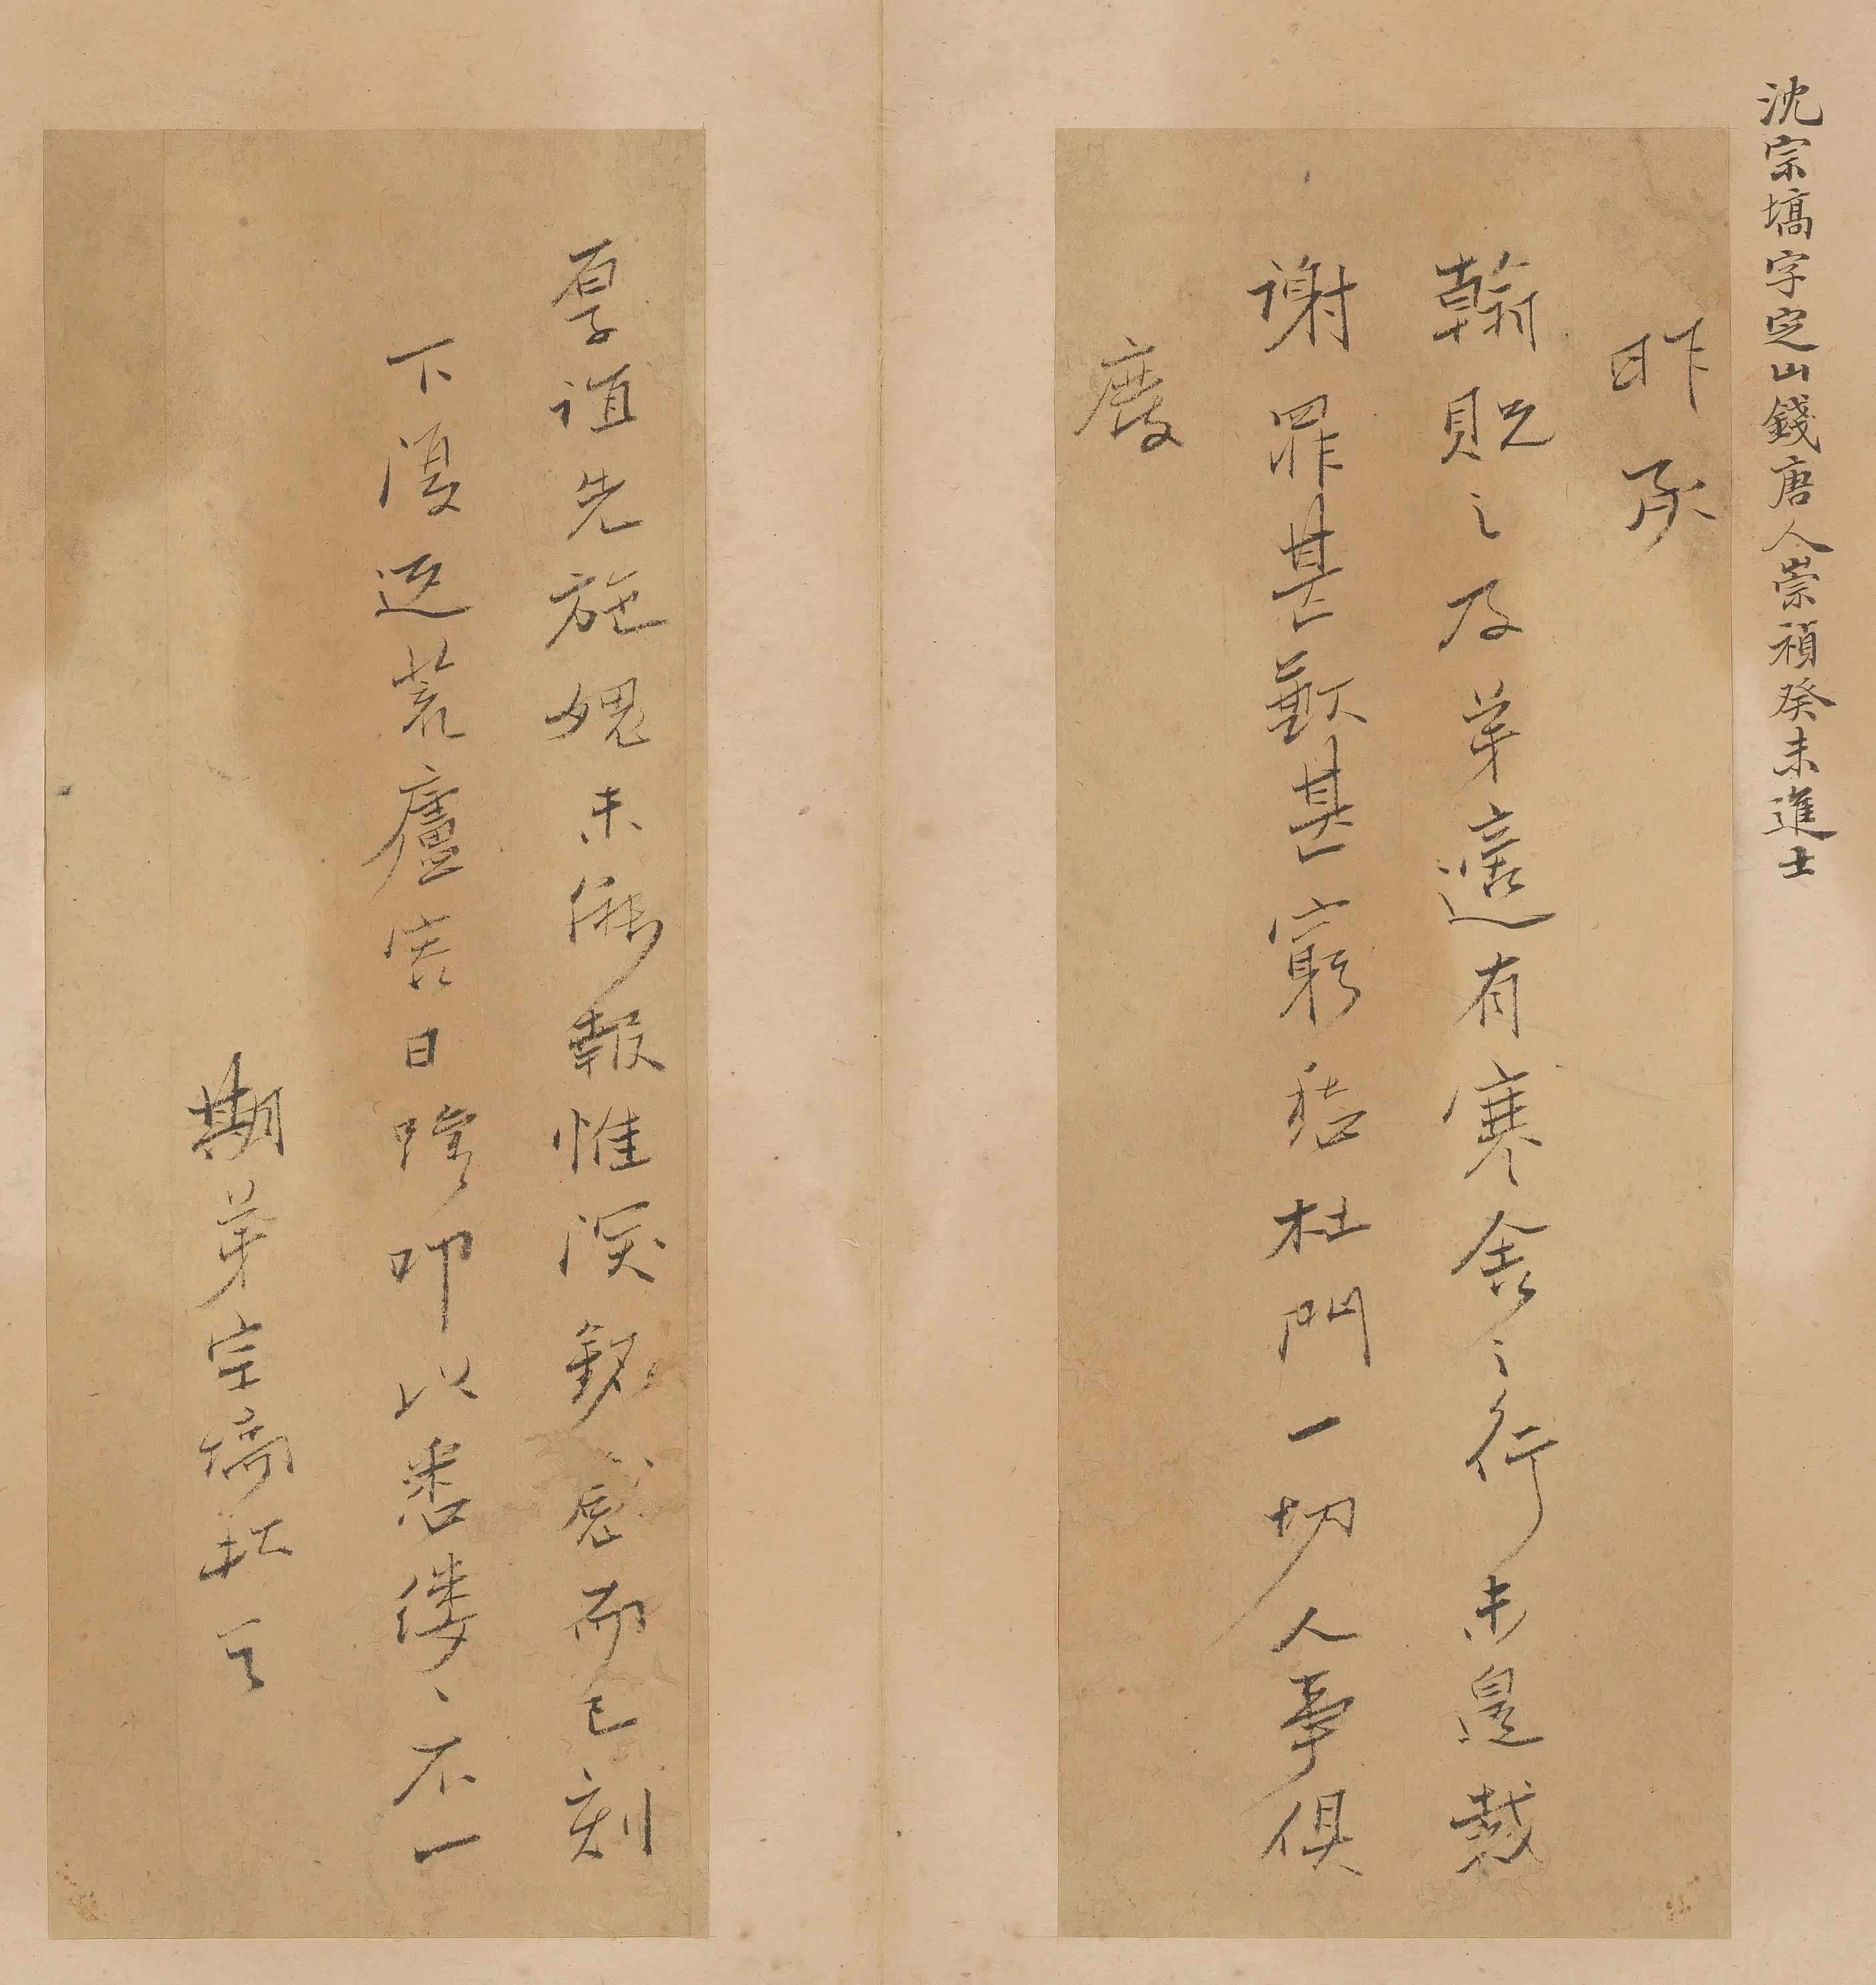 沈宗塙字定山錢唐人崇禎癸未進士
昨承
翰貺之及弟適有寒舍之行未遑裁
謝罪甚歉甚窮嵇杜門一切人事俱
廢
厚誼先施媿未能報惟深銘感而已刻
下復返荒廬容日躋叩以悉僂〻不一
期弟宗塙拜言